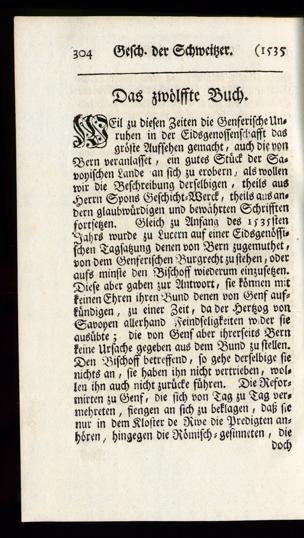 304 Gesch. der Schweitzer. (1535
Das zwölffte Buch.
WEil zu diesen Zeiten die Genferische Un-
ruhen in der Eidsgenossenschafft das
gröste Aufsehen gemacht, auch die von
Bern veranlasset, ein gutes Stück der Sa-
voyischen Lande an sich zu erobern, als wollen
wir die Beschreibung derselbigen, theils aus
Herrn Spons Geschicht-Werck, theils aus an-
dern glaubwürdigen und bewährten Schrifften
fortsetzen. Gleich zu Anfang des 1535sten
Jahrs wurde zu Lucern auf einer Eidsgenössi-
schen Tagsatzung denen von Bern zugemuthet,
von dem Genferischen Burgrecht zu stehen, oder
aufs minste den Bischoff wiederum einzusetzen.
Diese aber gaben zur Antwort, sie können mit
keinen Ehren ihren Bund denen von Genf auf-
kündigen, zu einer Zeit, da der Hertzog von
Savoyen allerhand Feindseligkeiten wider sie
ausübte; die von Genf aber ihrerseits Bern
keine Ursache gegeben aus dem Bund zu stellen.
Den Bischoff betreffend, so gehe derselbige sie
nichts an, sie haben ihn nicht vertrieben, wol-
len ihn auch nicht zurücke führen. Die Refor-
mirten zu Genf, die sich von Tag zu Tag ver-
mehreten, fiengen an sich zu beklagen, daß sie
nur in dem Kloster de Rive die Predigten an-
hören, hingegen die Römisch-gesinneten, die
doch